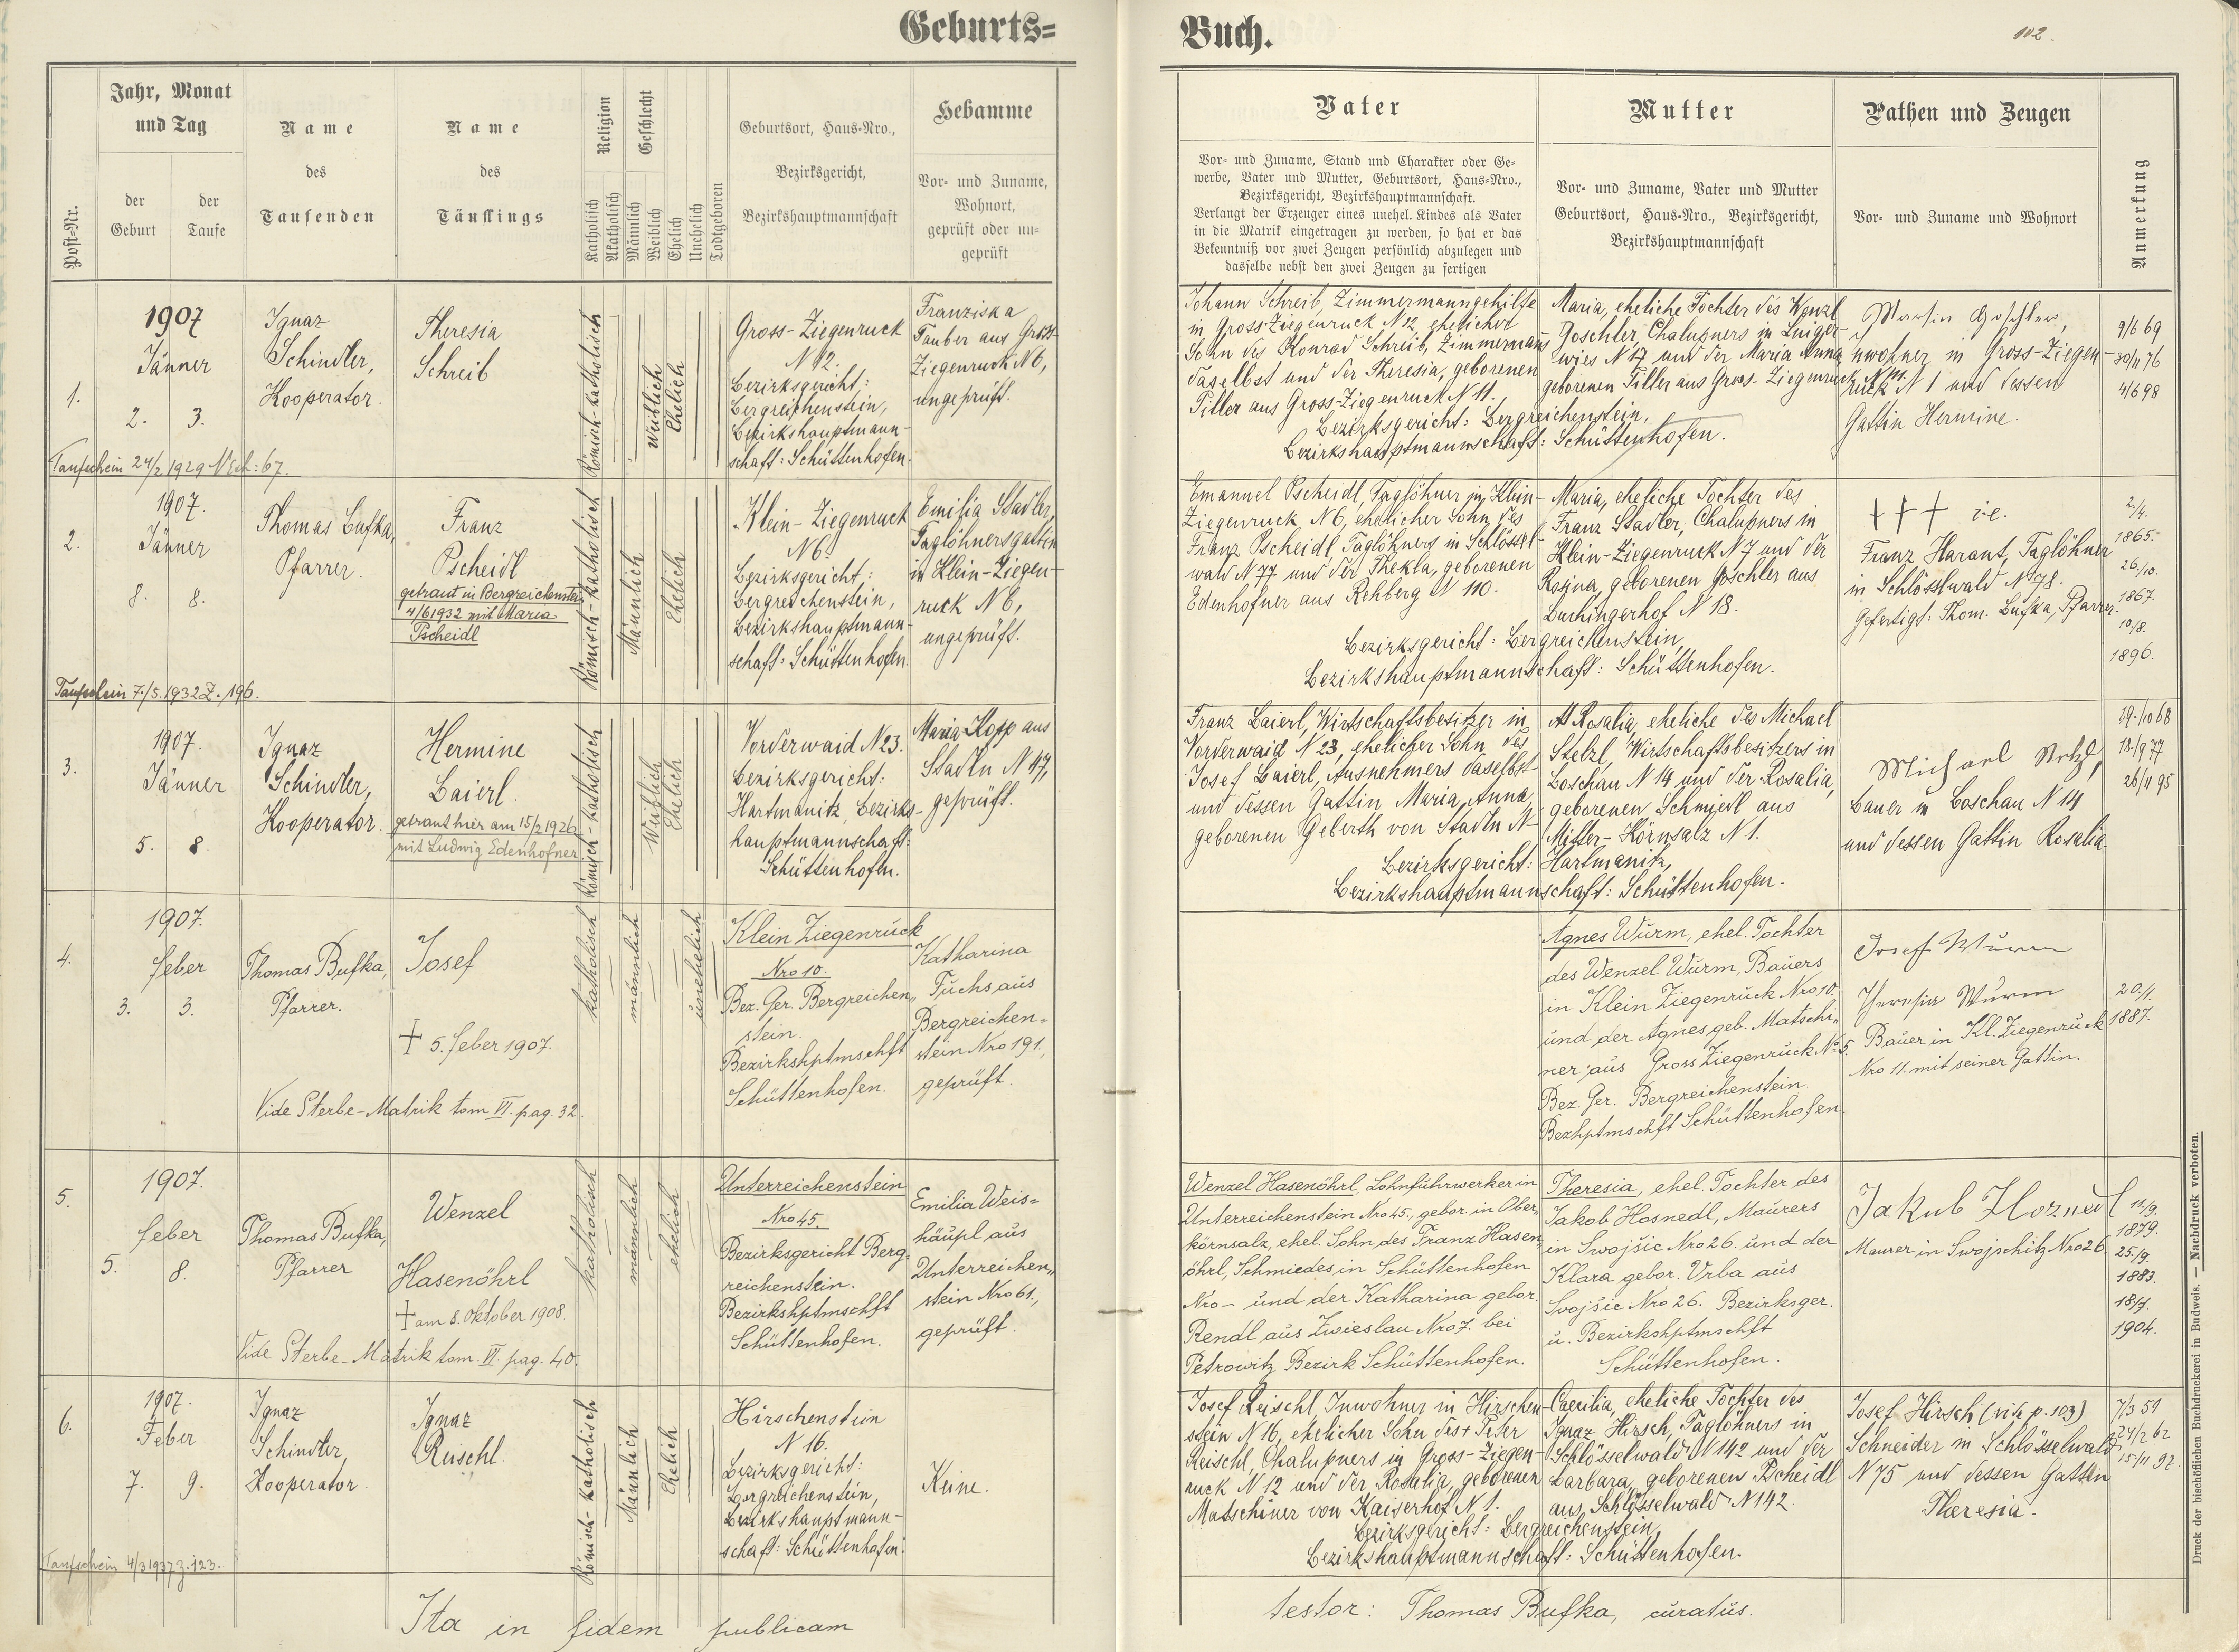 Geburts=
Buch.
102.
Post-Nr.
Jahr, Monat
und Tag
der
Geburt
der
Taufe
Name
des
Taufenden
Name
des
Täuflings
Religion
Katholisch
Akatholisch
Geschlecht
Männlich
Weiblich
Ehelich
Unehelich
Todtgeboren
Geburtsort, Haus-Nro.,
Bezirksgericht,
Bezirkshauptmannschaft
Hebamme
Vor- und Zuname,
Wohnort,
geprüft oder un-
geprüft
Vater
Vor- und Zuname, Stand und Charakter oder Ge-
werbe, Vater und Mutter, Geburtsort, Haus-Nro.,
Bezirksgericht, Bezirkshauptmannschaft.
Verlangt der Erzeuger eines unehel. Kindes als Vater
in die Matrik eingetragen zu werden, so hat er das
Bekenntniß vor zwei Zeugen persönlich abzulegen und
dasselbe nebst den zwei Zeugen zu fertigen
Mutter
Vor- und Zuname, Vater und Mutter
Geburtsort, Haus-Nro., Bezirksgericht,
Bezirkshauptmannschaft
Pathen und Zeugen
Vor- und Zuname und Wohnort
Anmerkung
1.
1907
Jänner
2. 3.
Ignaz
Schindler,
Kooperator.
Theresia
Schreib
Römisch-katholisch
Weiblich
Ehelich
Gross-Ziegenruck
N 12.
Bezirksgericht:
Bergreichenstein,
Bezirkshauptmann-
schaft: Schüttenhofen.
Franziska
Tauber aus Gross-
Ziegenruck N 6,
ungeprüft.
Johann Schreib, Zimmermanngehilfe
in Gross-Ziegenruck N 12, ehelicher
Sohn des Konrad Schreib, Zimmermanns
daselbst und der Theresia, geborenen
Piller aus Gross-Ziegenruck N 11.
Maria, eheliche Tochter des Wenzl
Goschler, Chalupners in
wies N 17 und der Maria Anna
geborenen Piller aus Gross-Ziegenruck N 11.
Bezirksgericht: Bergreichenstein,
Bezirkshauptmannschaft: Schüttenhofen.
Martin Goschler,
Inwohner in Gross-Ziegen-
ruck N 1 und dessen
Gattin Hermine.
9/6 69
30/11 76
4/6 98
Taufschein 24/2 1929 N Exh: 67.
2.
1907.
Jänner
8. 8.
Thomas Bufka,
Pfarrer.
Franz
Pscheidl
getraut in Bergreichenstein
4/6 1932 mit Maria
Pscheidl
Römisch-katholisch
Männlich
Ehelich
Klein-Ziegenruck
N 6.
Bezirksgericht:
Bergreichenstein,
Bezirkshauptmann-
schaft: Schüttenhofen.
Emilia Stadler,
Taglöhnersgattin
in Klein-Ziegen-
ruck N 6,
ungeprüft.
Emanuel Pscheidl, Taglöhner in Klein-
Ziegenruck N 6, ehelicher Sohn des
Franz Pscheidl Taglöhners in Schlössel-
wald N 77 und der Thekla, geborenen
Edenhofner aus Rehberg N 110.
Maria, eheliche Tochter des
Franz Stadler, Chalupners in
Klein-Ziegenruck N 7 und der
Rosina, geborenen Goschler aus
Duchingerhof N 18.
Bezirksgericht: Bergreichenstein,
Bezirkshauptmannschaft: Schüttenhofen.
+++ i.e.
Franz Harant, Taglöhner
in Schlösslwald N 78.
Gefertigt: Thom. Bufka, Pfarrer.
2/4.
1865.
26/10.
1867.
10/8.
1896.
Taufschein 7./5. 1932 Z. 196.
3.
1907.
Jänner
5. 8.
Ignaz
Schindler,
Kooperator.
Hermine
Baierl.
getraut hier am 15/2 1926
mit Ludwig Edenhofner.
Römisch-katholisch
Weiblich
Ehelich
Vorderwaid N 23.
Bezirksgericht:
Hartmanitz, Bezirks-
hauptmannschaft:
Schüttenhofen.
Maria Kopp aus
Stadln N 47,
geprüft.
Franz Baierl, Wirtschaftsbesitzer in
Vorderwaid N 23, ehelicher Sohn des
Josef Baierl, Ausnehmers daselbst
und dessen Gattin Maria Anna,
geborenen Geberth von Stadln N-
Rosalia, eheliche des Michael
Stelzl, Wirtschaftsbesitzers in
Boschau N 14 und der Rosalia,
geborenen Schmiedl aus
Mitter-Körnsalz N 1.
Bezirksgericht: Hartmanitz,
Bezirkshauptmannschaft: Schüttenhofen.
Michael Stelzl,
Bauer in Boschau N 14
und dessen Gattin Rosalia.
19/10 68
18/9 77
26/11 95
4.
1907.
Feber
3. 3.
Thomas Bufka,
Pfarrer.
Josef
+ 5. Feber 1907.
Vide Sterbe-Matrik tom VI. pag. 32.
katholisch
männlich
unehelich
Klein Ziegenruck
Nro 10.
Bez. Ger. Bergreichen„
stein.
Bezirkshptmschft
Schüttenhofen.
Katharina
Fuchs aus
Bergreichen=
stein Nro 191.,
geprüft.
Agnes Wurm, ehel. Tochter
des Wenzel Wurm, Bauers
in Klein Ziegenruck Nro 10.
und der Agnes geb. Matschi„
ner aus Gross Ziegenruck No 5.
Bez. Ger. Bergreichenstein.
Bezhptmschft Schüttenhofen.
Josef Wurm
Theresia Wurm
Bauer in Kl. Ziegenruck
Nro 11. mit seiner Gattin.
20./1.
1887.
5.
1907.
Feber
5. 8.
Thomas Bufka,
Pfarrer
Wenzel
Hasenöhrl
+ am 8. Oktober 1908.
Vide Sterbe-Matrik tom. VI. pag. 40.
katholisch
männlich
ehelich
Unterreichenstein
Nro 45.
Bezirksgericht Berg-
reichenstein.
Bezirkshptmschft
Schüttenhofen.
Emilia Weis=
häupl aus
Unterreichen„
stein Nro 61.,
geprüft.
Wenzel Hasenöhrl, Lohnführwerker in
Unterreichenstein Nro 45., gebor. in Ober„
körnsalz, ehel. Sohn des Franz Hasen„
öhrl, Schmiedes in Schüttenhofen
Nro - und der Katharina gebor.
Rendl aus Zwieslau Nro 7. bei
Petrowitz Bezirk Schüttenhofen.
Theresia, ehel. Tochter des
Jakob Hosnedl, Maurers
in Swojšic Nro 26. und der
Klara gebor. Vrba aus
Svojšic Nro 26. Bezirksger.
u. Bezirkshptmschft
Schüttenhofen.
Jakub
Maurer in Swojschitz Nro 26.
11/9.
1879.
25/9.
1883.
18/1.
1904.
6.
1907.
Feber
7. 9.
Ignaz
Schindler,
Kooperator
Ignaz
Reischl.
Römisch-katholisch
Männlich
Ehelich
Hirschenstein
N 16.
Bezirksgericht:
Bergreichenstein,
Bezirkshauptmann-
schaft: Schüttenhofen.
Keine.
Josef Reischl, Inwohner in Hirschen-
stein N 16, ehelicher Sohn des + Peter
Reischl, Chalupners in Gross-Ziegen-
ruck N 12 und der Rosalia, geborenen
Matschiner von Kaiserhof N 1.
Caecilia, eheliche Tochter des
Ignaz Hirsch, Taglöhners in
Schlösselwald N 142 und der
Barbara, geborenen Pscheidl
aus Schlösselwald N 142.
Bezirksgericht: Bergreichenstein,
Bezirkshauptmannschaft: Schüttenhofen.
Josef Hirsch (vide p. 103)
Schneider in Schlösselwald
N 75 und dessen Gattin
Theresia.
7/3 51
24/2 62
15/11 92.
Taufschein 4/3 1937 Z. 123.
Ita in fidem publicam
testor: Thomas Bufka, curatus.
Druck der bischöflichen Buchdruckerei in Budweis. — Nachdruck verboten.